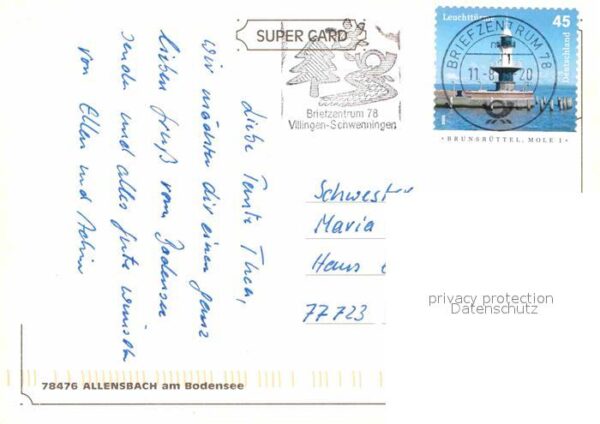 SUPER CARD
Briefzentrum 78
Villingen-Schwenningen
Leuchttürme
45
Deutschland
BRIEFZENTRUM 78
11.-8
20
BRUNSBÜTTEL, MOLE 1
Liebe Tante Thea,
wir möchten dir einen ganz
lieben Gruß vom Bodensee
senden und alles Gute wünschen
von Ellen und Achim
Schwester
Maria
Haus
77723
privacy protection
Datenschutz
78476 ALLENSBACH am Bodensee